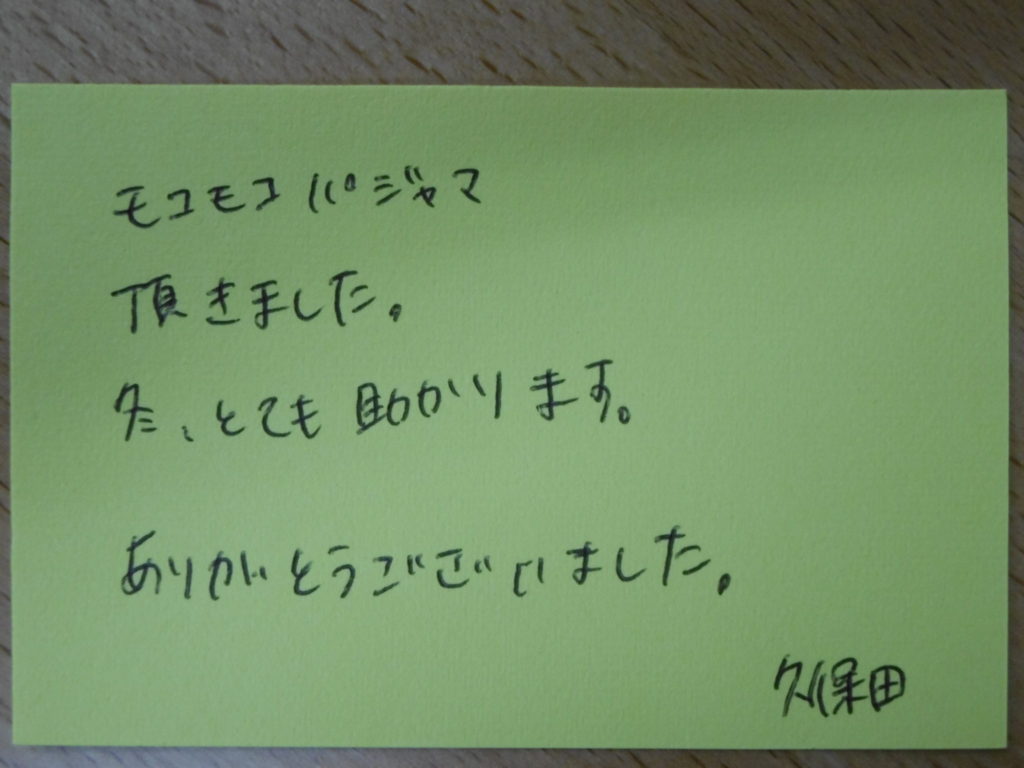 モコモコパジャマ
頂きました。
冬、とても助かります。
ありがとうございました。
久保田